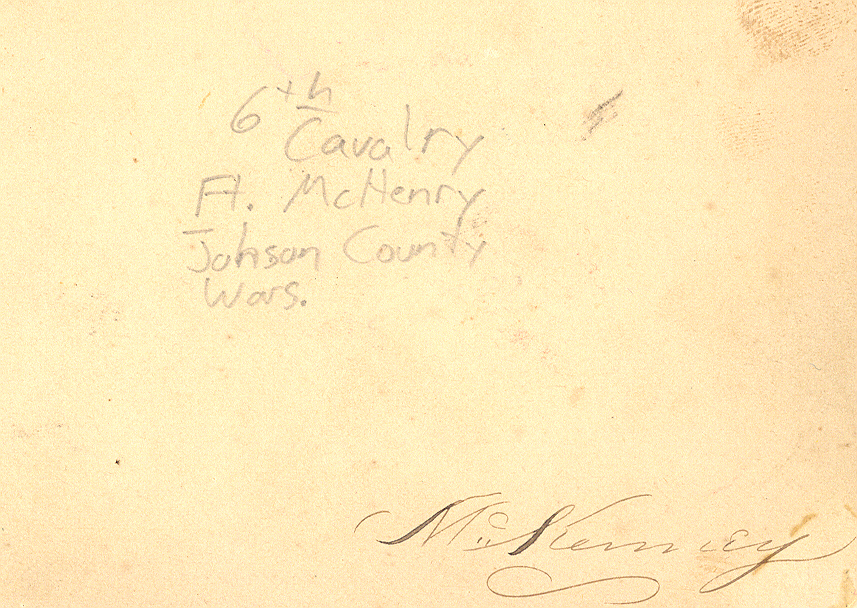 6th
Cavalry
Ft. McHenry
Johson County
Wars.
McKenney